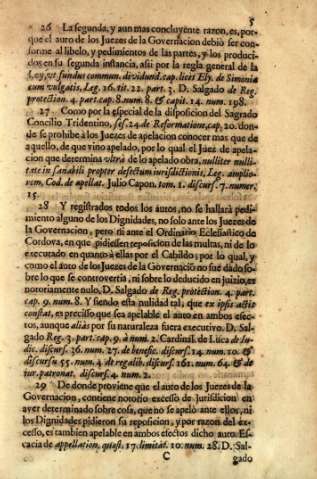 5
26 La segunda, y aun mas concluyente razon, es, por-
que el auro de los Juezes de la Governacion debiò ser con-
forme al libelo, y pedimientos de las partes, y los produci-
dos en su segunda instancia, assi por la regla general de la
Ley, ut fundus commun. dividund. cap. licet Ely. de Simonia
cum vulgatis, Leg. 16. tit. 22. part. 3. D. Salgado de Reg.
protection. 4. part. cap. 8. num. 8. & capit. 14. num. 198.
27 Como por la especial de la disposicion del Sagrado
Concilio Tridentino, ses. 24. de Reformatione, cap. 20. don-
de se prohibe à los Juezes de apelacion conocer mas que de
aquello, de que vino apelado, por lo qual el Juez de apela-
cion que determina vltrà de lo apelado obra, nulliter nulli-
tate insanabili propter defectum jurisdictionis, Leg. amplio-
rem, Cod. de apellat. Julio Capon. tom. 1. discurs. 7. numer.
15.
28 Y registrados todos los autos, no se hallarà pedi-
miento alguno de los Dignidades, no solo ante los Juezes de
la Governacion, pero ni ante el Ordinario Eclesiastico de
Cordova, en que pidiessen reposicion de las multas, ni de lo
executado en quanto à ellas por el Cabildo; por lo qual, y
como el auto de los Juezes de la Governaciō no fue dado so-
bre lo que se controvertia, ni sobre lo deducido en juizio, es
notoriamente nulo, D. Salgado de Reg. protection. 4. part.
cap. 9. num. 8. Y siendo esta nulidad tal, que ex ipsis actis
constat, es precisso que sea apelable el auto en ambos efec-
tos, aunque aliàs por su naturaleza fuera executivo. D. Sal-
gado Reg. 3. part. cap. 9. à num. 2. Cardinal. de Luca de Iu-
dic. discurs. 36. num. 27. de benefic. discurs. 14. num. 10. &
discursu 55. num. 4. de regalib. discurs. 161. num. 64. & de
iur. patronat. discurs. 4. num. 2.
29 De donde proviene que el auto de los Juezes de la
Governacion, contiene notorio excesso de Jurisdicion en
aver determinado sobre cosa, que no se apelò ante ellos, ni
los Dignidades pidieron su reposicion, y por razon del ex-
cesso, es tambien apelable en ambos efectos dicho auto. Es-
cacia de appellation. quæst. 17. limitat. 10. num. 28. D. Sal-
C gado